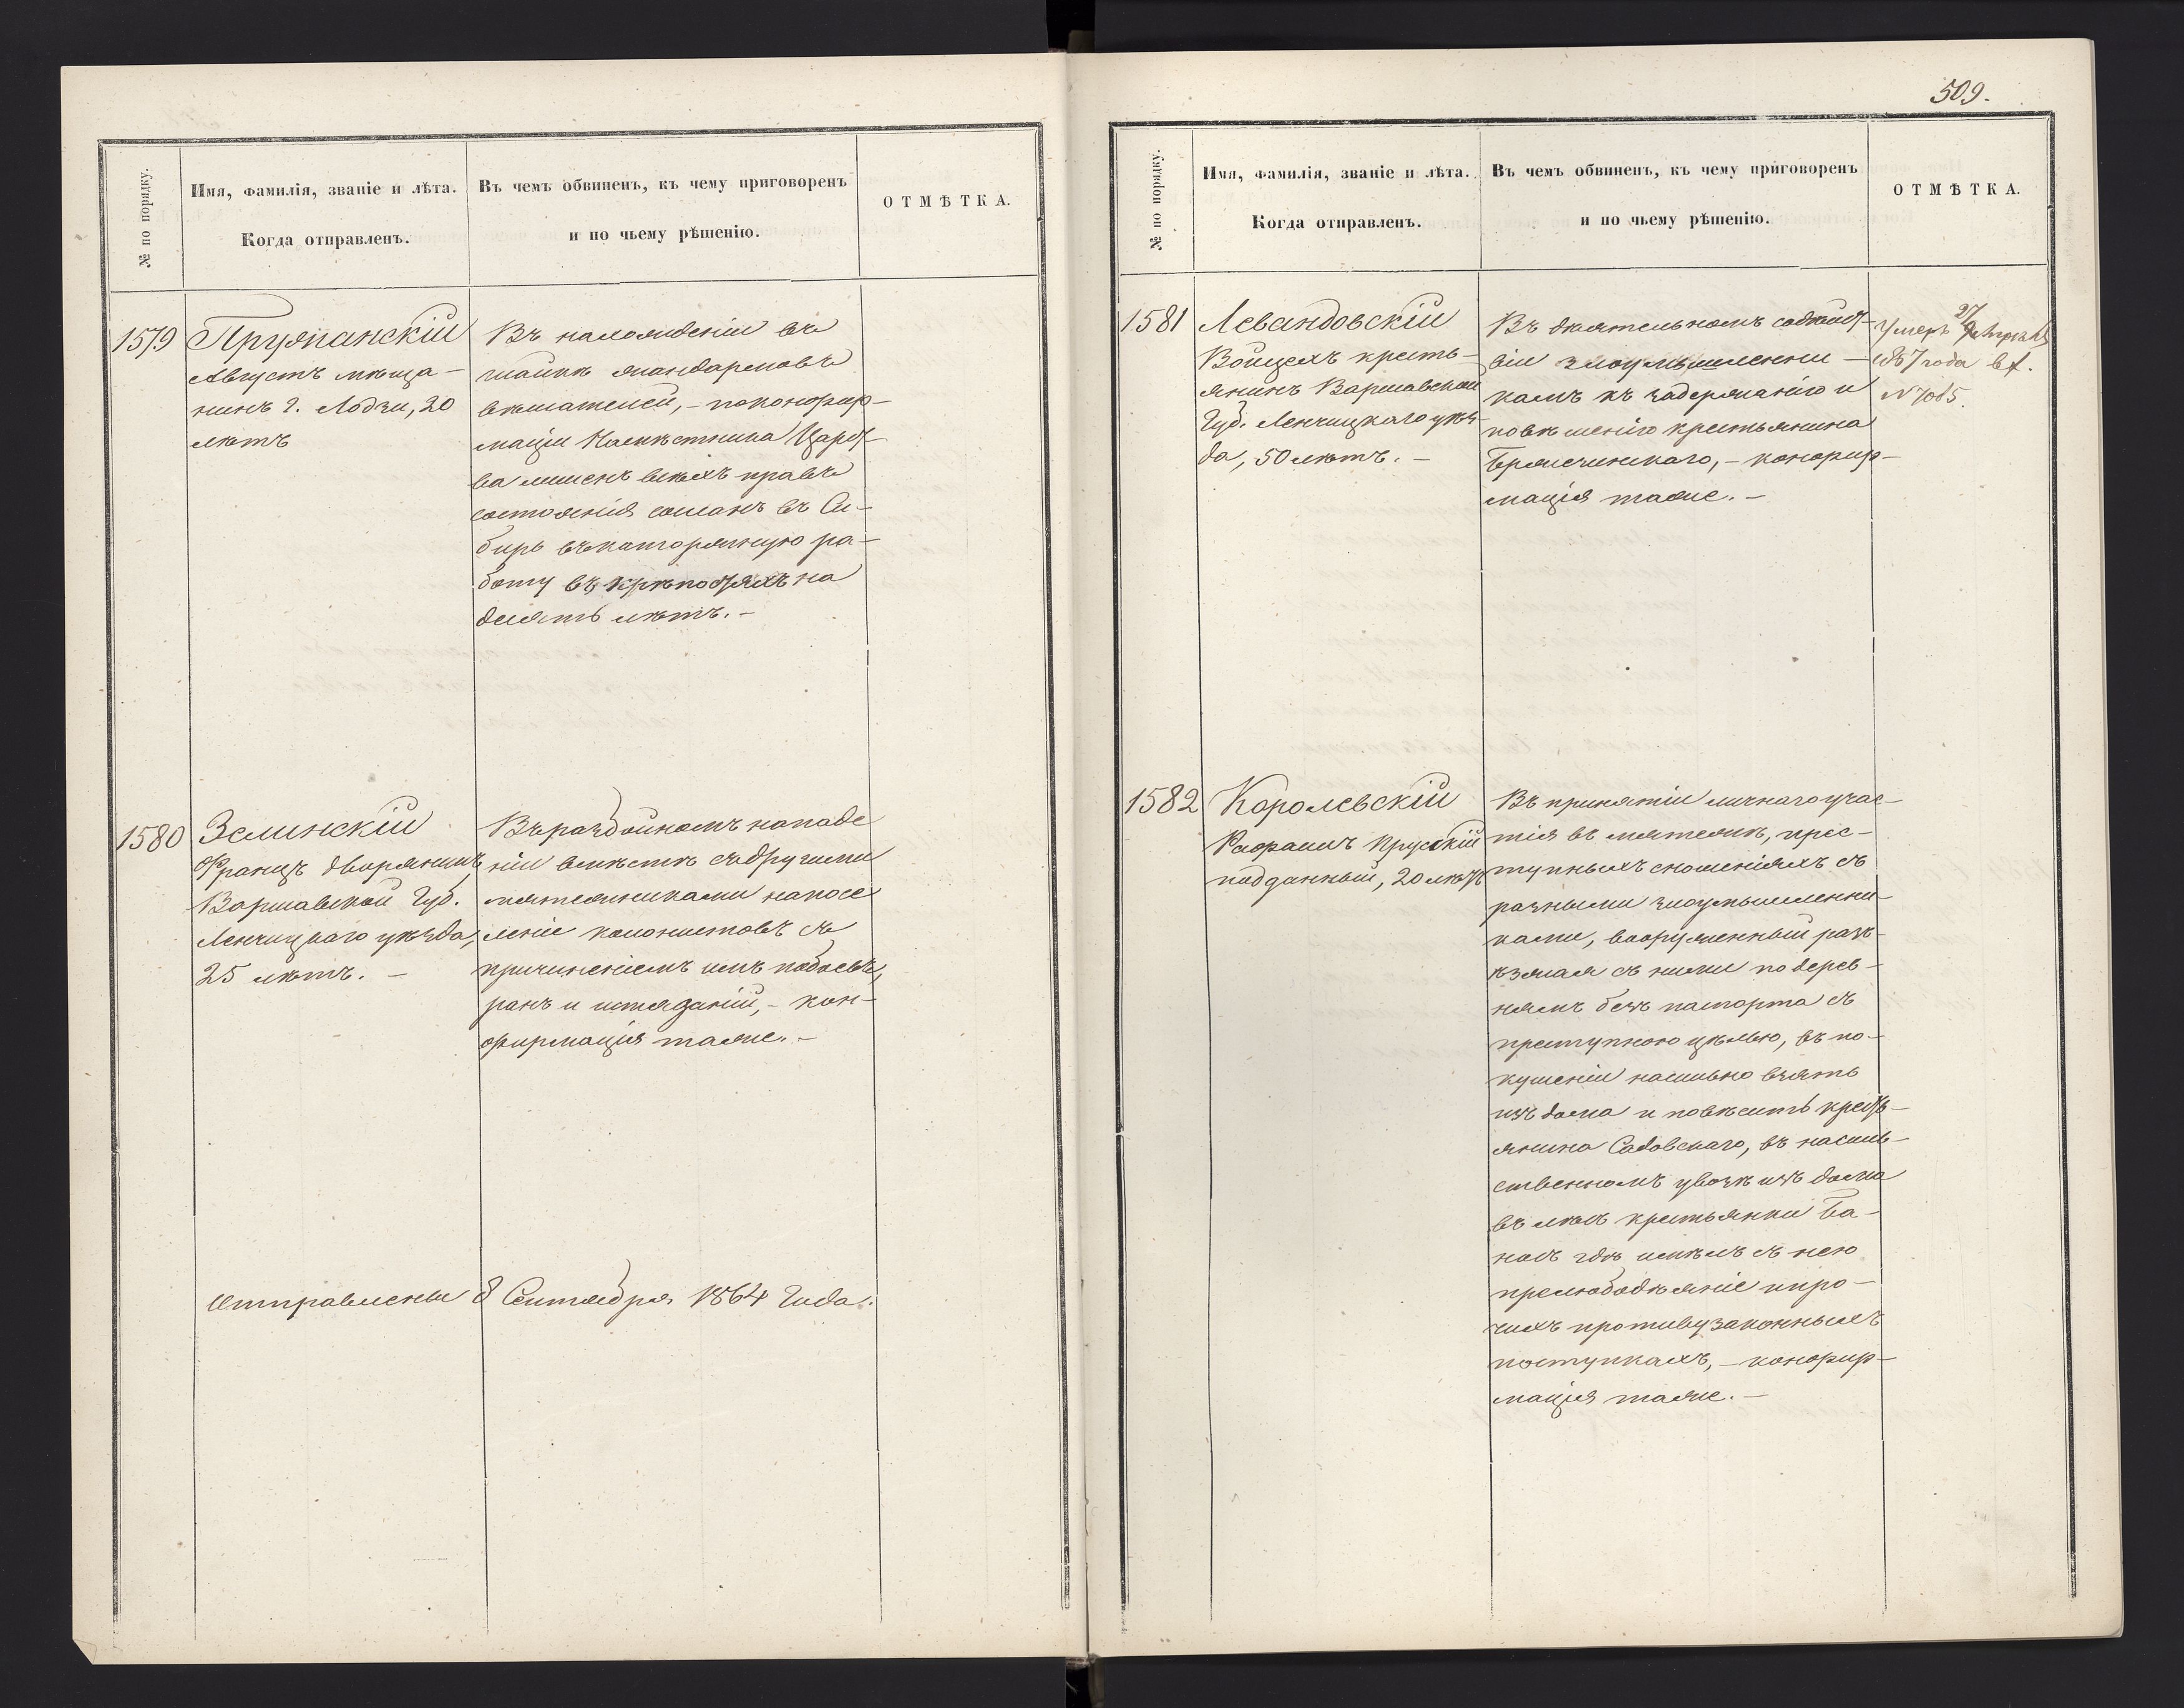 № по порядку.
Имя, фамилія, званіе и лѣта.
Когда отправленъ.
Въ чемъ обвиненъ, къ чему приговоренъ
и по чьему рѣшенію.
ОТМѢТКА.
1579
Пружанскій
Августъ мѣща-
нинъ г. Лодзи, 20
лѣтъ
Въ нахожденіи въ
шайкѣ жандармовъ
вѣшателей, - по конфир-
маціи Намѣстника Царст-
ва лишенъ всѣхъ правъ
состоянія сосланъ въ Си-
бирь въ каторжную ра-
боту въ крѣпостяхъ на
десять лѣтъ. -
1580
Зелинскій
Францъ дворянинъ
Варшавской Губ.
Ленчицкаго уѣзда,
25 лѣтъ. -
Въ разбойномъ нападе
ніи вмѣстѣ съ другими
мятежниками на посе
леніе колонистовъ съ
причиненіемъ имъ побоевъ,
ранъ и истязаній, - кон-
фирмація таже. -
Отправлены 8 Сентября 1864 Года.
509.
№ по порядку.
Имя, фамилія, званіе и лѣта.
Когда отправленъ.
Въ чемъ обвиненъ, къ чему приговоренъ
и по чьему рѣшенію.
ОТМѢТКА.
1581
Левандовскій
Войцехъ кресть-
янинъ Варшавской
Губ. Ленчицкаго уѣз-
да, 50 лѣтъ. -
Въ дѣятельномъ содѣйст-
віи злоумышленни-
камъ къ задержанію и
повѣшенію крестьянина
конфир-
мація таже. -
Умеръ 27
1867 года
№ 7085.
1582
Королевскій
Рафаилъ Прусскій
подданный, 20 лѣтъ
Въ принятіи личнаго учас-
тія въ мятежѣ, прес-
тупныхъ сношеніяхъ съ
разными злоумышленни-
ками, вооруженный разъ-
ѣзжая съ ними по дерев-
нямъ безъ паспорта съ
преступною цѣлью, въ по-
кушеніи насильно взять
изъ дома и повѣсить кресть-
янина Садовскаго, въ насиль-
ственномъ увозѣ изъ дома
въ лѣсъ крестьянки Ба-
насъ гдѣ имѣлъ съ нею
прелюбодѣяніе и про-
чихъ противузаконныхъ
поступкахъ, - конфир-
мація таже. -